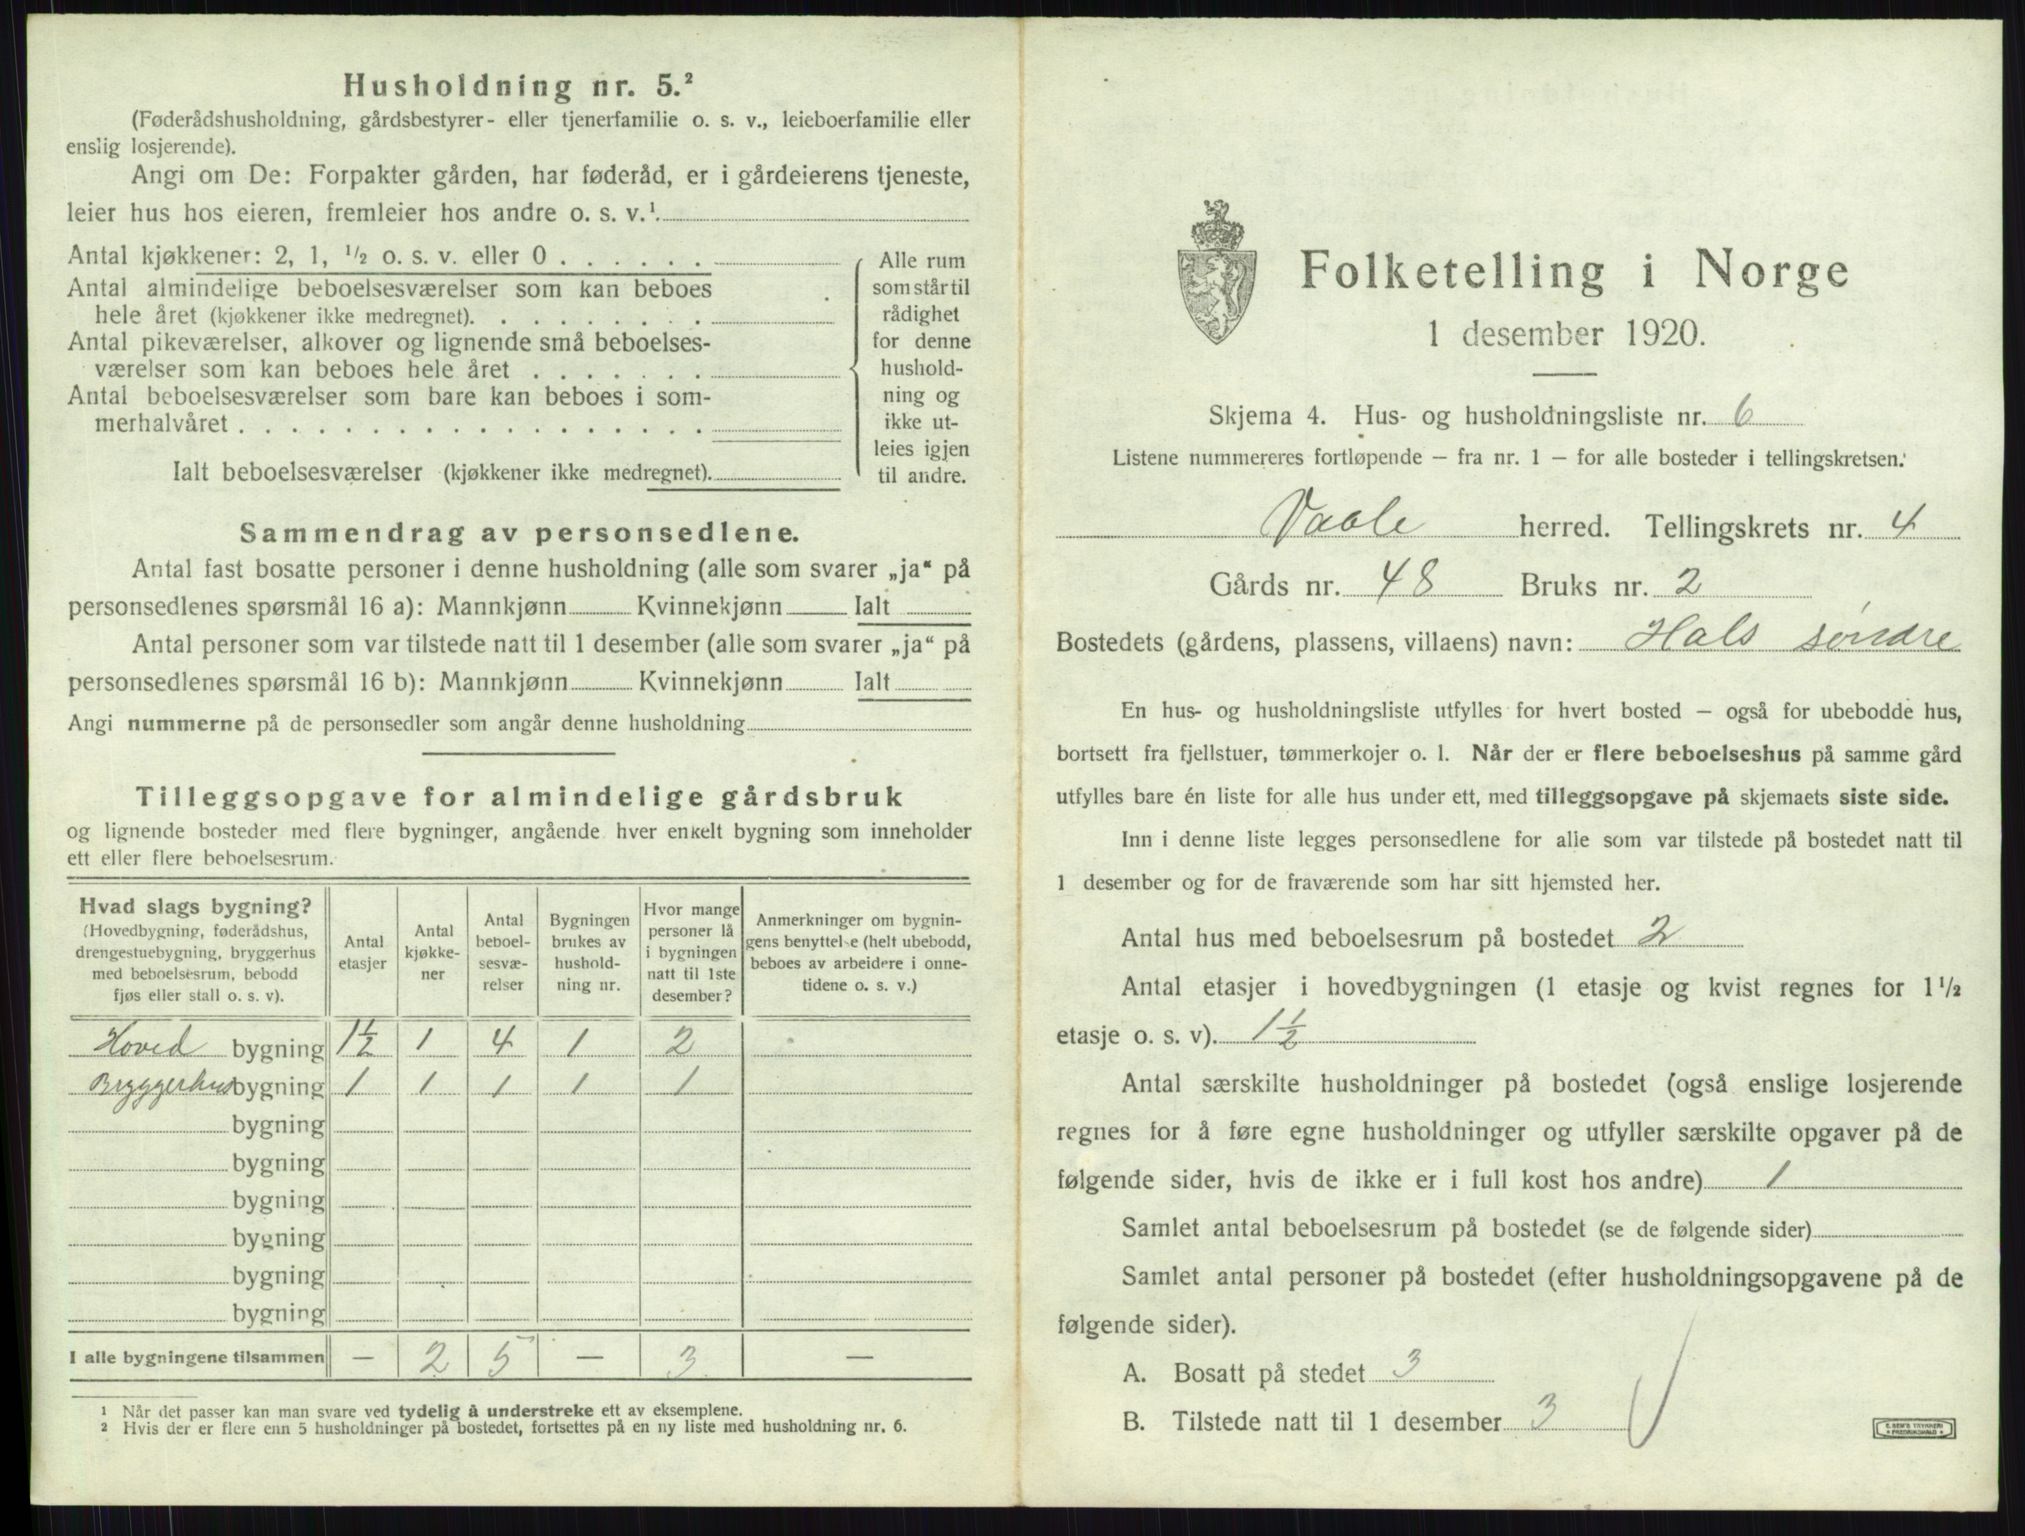 Husholdning nr. 5.²
(Føderådshusholdning, gårdsbestyrer- eller tjenerfamilie o. s. v., leieboerfamilie eller
enslig losjerende).
Angi om De: Forpakter gården, har føderåd, er i gårdeierens tjeneste,
leier hus hos eieren, fremleier hos andre o. s. v.¹
Antal kjøkkener: 2, 1, ½ o. s. v. eller 0 . . . . . .
Antal almindelige beboelsesværelser som kan beboes
hele året (kjøkkener ikke medregnet). . . . . . . . .
Antal pikeværelser, alkover og lignende små beboelses-
værelser som kan beboes hele året . . . . . . .
Antal beboelsesværelser som bare kan beboes i som-
merhalvåret . . . . . . . . . . . . . . . . . .
Ialt beboelsesværelser (kjøkkener ikke medregnet).
Alle rum
som står til
rådighet
for denne
hushold-
ning og
ikke ut-
leies igjen
til andre.
Sammendrag av personsedlene.
Antal fast bosatte personer i denne husholdning (alle som svarer „ja“ på
personsedlenes spørsmål 16 a): Mannkjønn Kvinnekjønn Ialt
Antal personer som var tilstede natt til 1 desember (alle som svarer „ja“ på
personsedlenes spørsmål 16 b): Mannkjønn Kvinnekjønn Ialt
Angi nummerne på de personsedler som angår denne husholdning
Tilleggsopgave for almindelige gårdsbruk
og lignende bosteder med flere bygninger, angående hver enkelt bygning som inneholder
ett eller flere beboelsesrum.
Hvad slags bygning?
(Hovedbygning, føderådshus,
drengestuebygning, bryggerhus
med beboelsesrum, bebodd
fjøs eller stall o. s. v).
Antal
etasjer
Antal
kjøkke-
ner
Antal
beboel-
sesvæ-
relser
Bygningen
brukes av
hushold-
ning nr.
Hvor mange
personer lå
i bygningen
natt til 1ste
desember?
Anmerkninger om bygnin-
gens benyttelse (helt ubebodd,
beboes av arbeidere i onne-
tidene o. s. v.)
Hoved bygning 1½ 1 4 1 2
Bryggerhus bygning 1 1 1 1 1
bygning
bygning
bygning
bygning
bygning
bygning
I alle bygningene tilsammen — 2 5 — 3 —
¹ Når det passer kan man svare ved tydelig å understreke ett av eksemplene.
² Hvis der er flere enn 5 husholdninger på bostedet, fortsettes på en ny liste med husholdning nr. 6.
Folketelling i Norge
1 desember 1920.
Skjema 4. Hus- og husholdningsliste nr. 6
Listene nummereres fortløpende — fra nr. 1 — for alle bosteder i tellingskretsen.
Vaale herred. Tellingskrets nr. 4
Gårds nr. 48 Bruks nr. 2
Bostedets (gårdens, plassens, villaens) navn: Hals søndre
En hus- og husholdningsliste utfylles for hvert bosted — også for ubebodde hus,
bortsett fra fjellstuer, tømmerkojer o. l. Når der er flere beboelseshus på samme gård
utfylles bare én liste for alle hus under ett, med tilleggsopgave på skjemaets siste side.
Inn i denne liste legges personsedlene for alle som var tilstede på bostedet natt til
1 desember og for de fraværende som har sitt hjemsted her.
Antal hus med beboelsesrum på bostedet 2
Antal etasjer i hovedbygningen (1 etasje og kvist regnes for 1½
etasje o. s. v). 1½
Antal særskilte husholdninger på bostedet (også enslige losjerende
regnes for å føre egne husholdninger og utfyller særskilte opgaver på de
følgende sider, hvis de ikke er i full kost hos andre) 1
Samlet antal beboelsesrum på bostedet (se de følgende sider)
Samlet antal personer på bostedet (efter husholdningsopgavene på de
følgende sider).
A. Bosatt på stedet 3
B. Tilstede natt til 1 desember 3
E. SEM'S TRYKKERI
FREDRIKSHALD